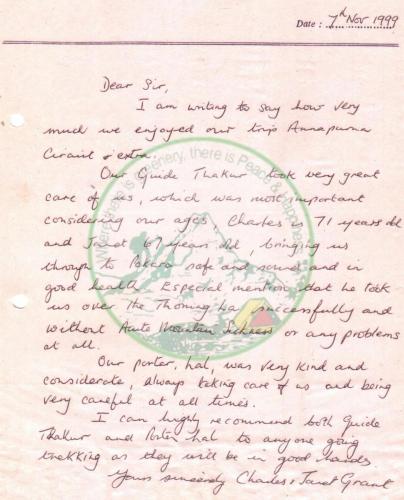 Date : 7th Nov 1999
Dear Sir,
I am writing to say how very
much we enjoyed our trip Annapurna
Circuit & extra.
Our Guide Thakur took very great
care of us, which was most important
considering our ages, Charles is 71 years old
and Janet 67 years old, bringing us
through to Pokara safe and sound and in
good health. Especial mention that he took
us over the Thorung La successfully and
without Acute Mountain Sickness or any problems
at all.
Our porter, hal, was very kind and
considerate, always taking care of us and being
very careful at all times.
I can highly recommend both Guide
Thakur and Porter hal to anyone going
trekking as they will be in good hands.
Yours sincerely Charles & Janet Grant
Where there is greenery, there is Peace & Happiness